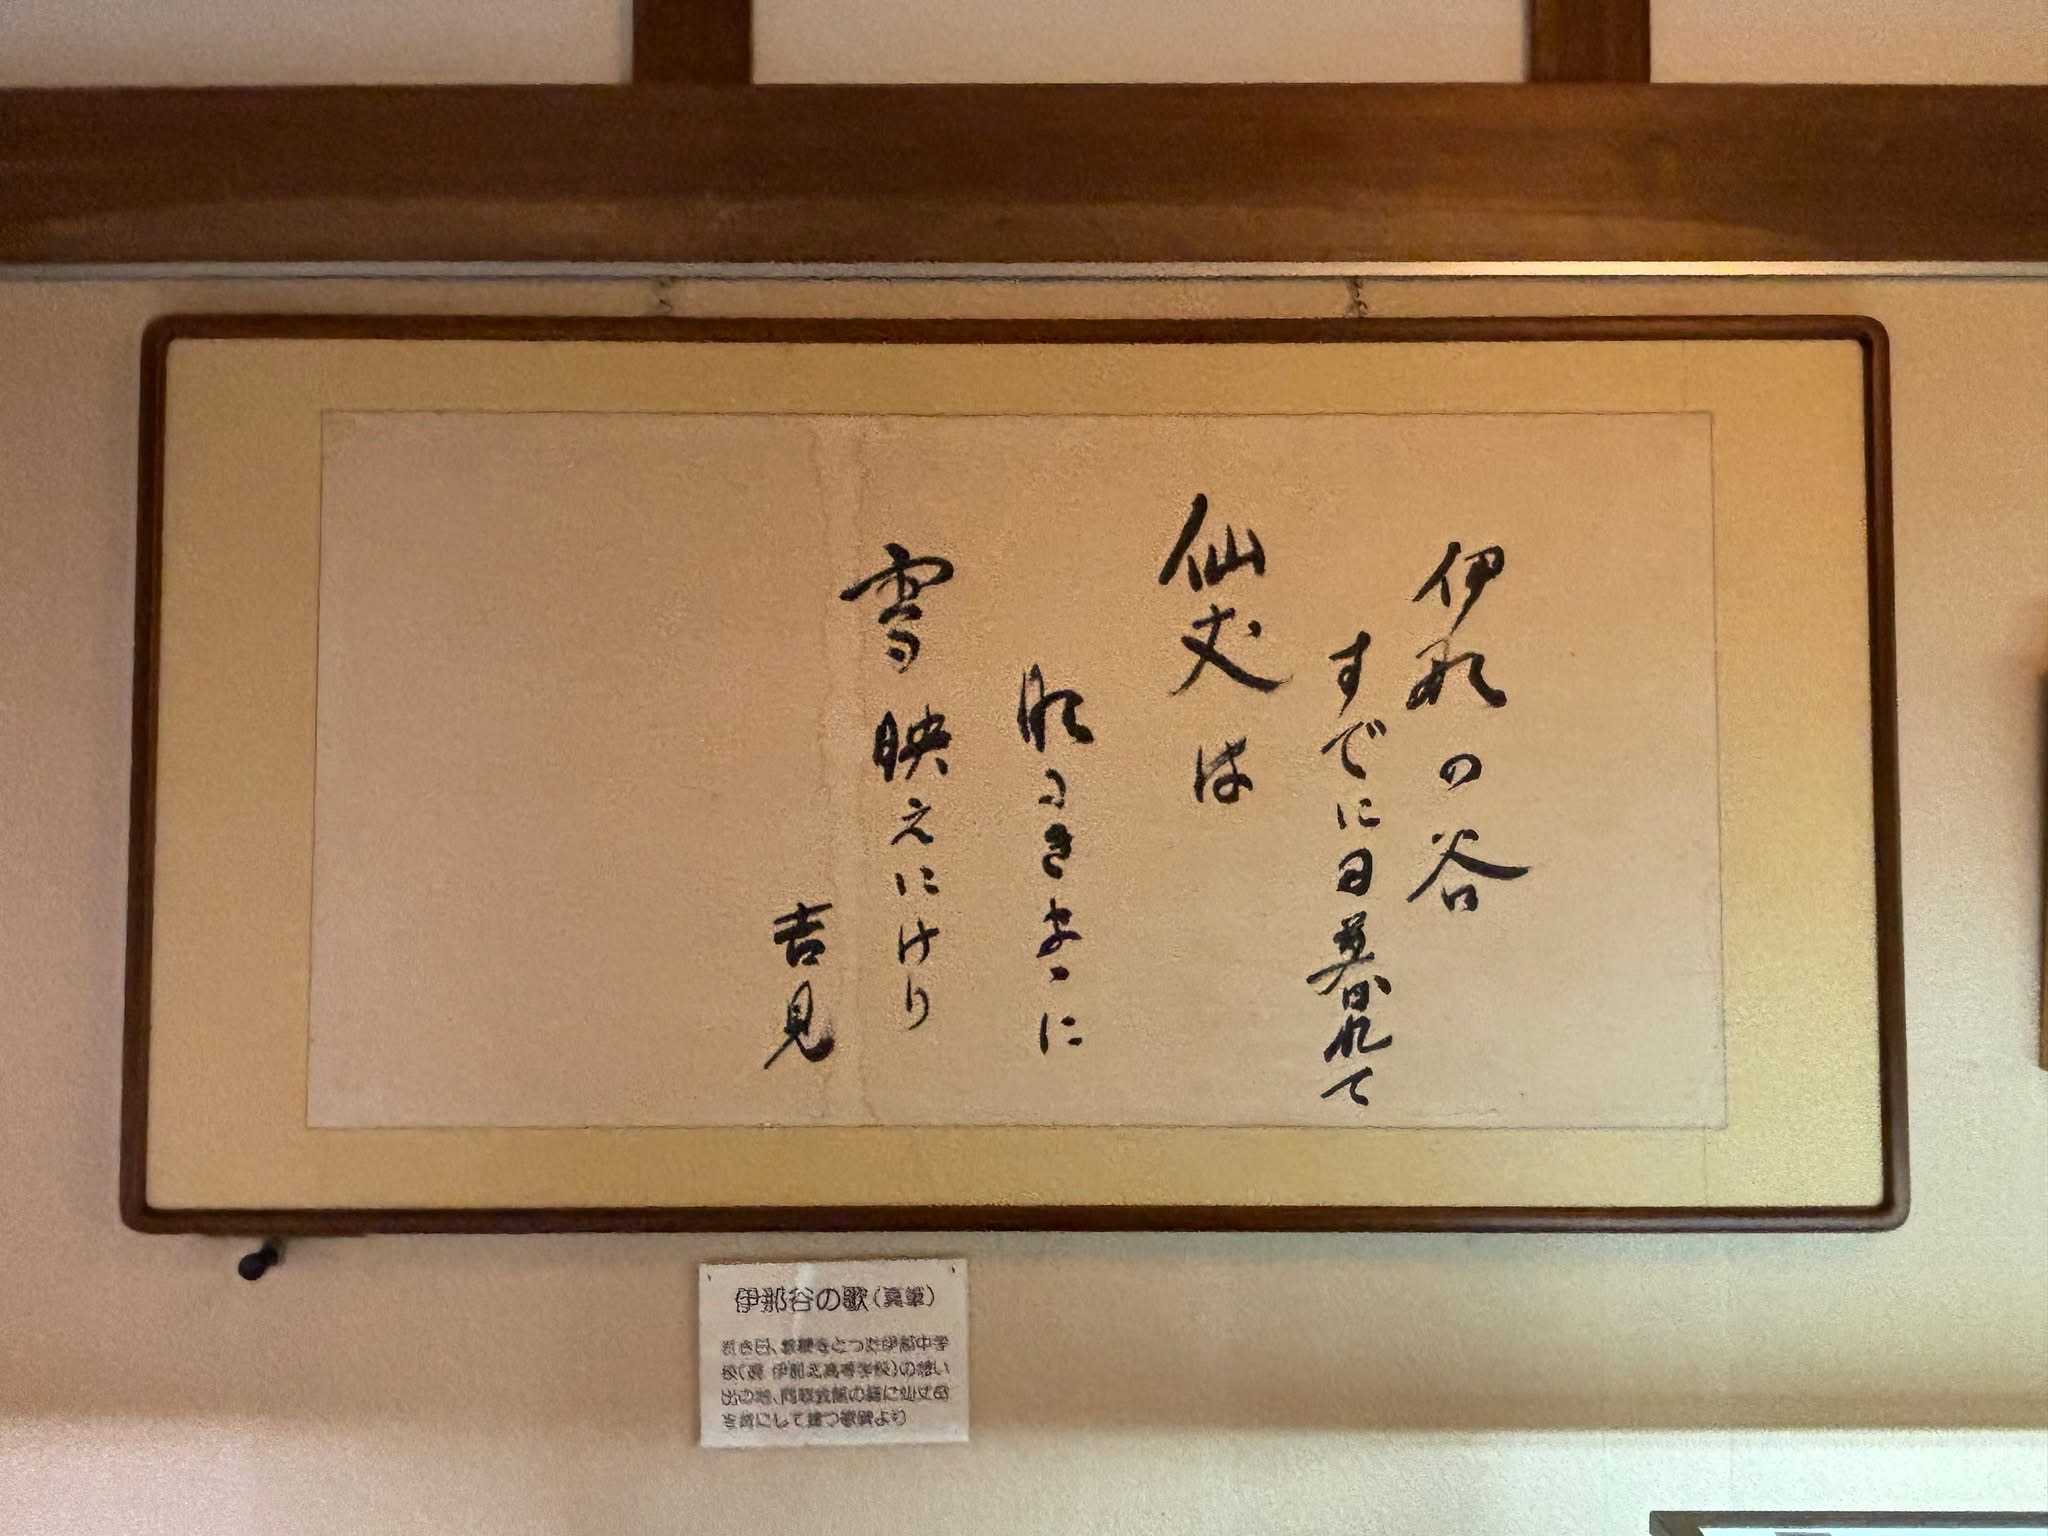 伊那の谷
すでに日暮れて
仙丈は
明るきまゝに
雪映えにけり
吉見
伊那谷の歌(真筆)
若き日、教鞭をとった伊那中学
校(現 伊那北高等学校)の想い
出の地、同窓会館の庭に仙丈岳
を背にして建つ歌碑より